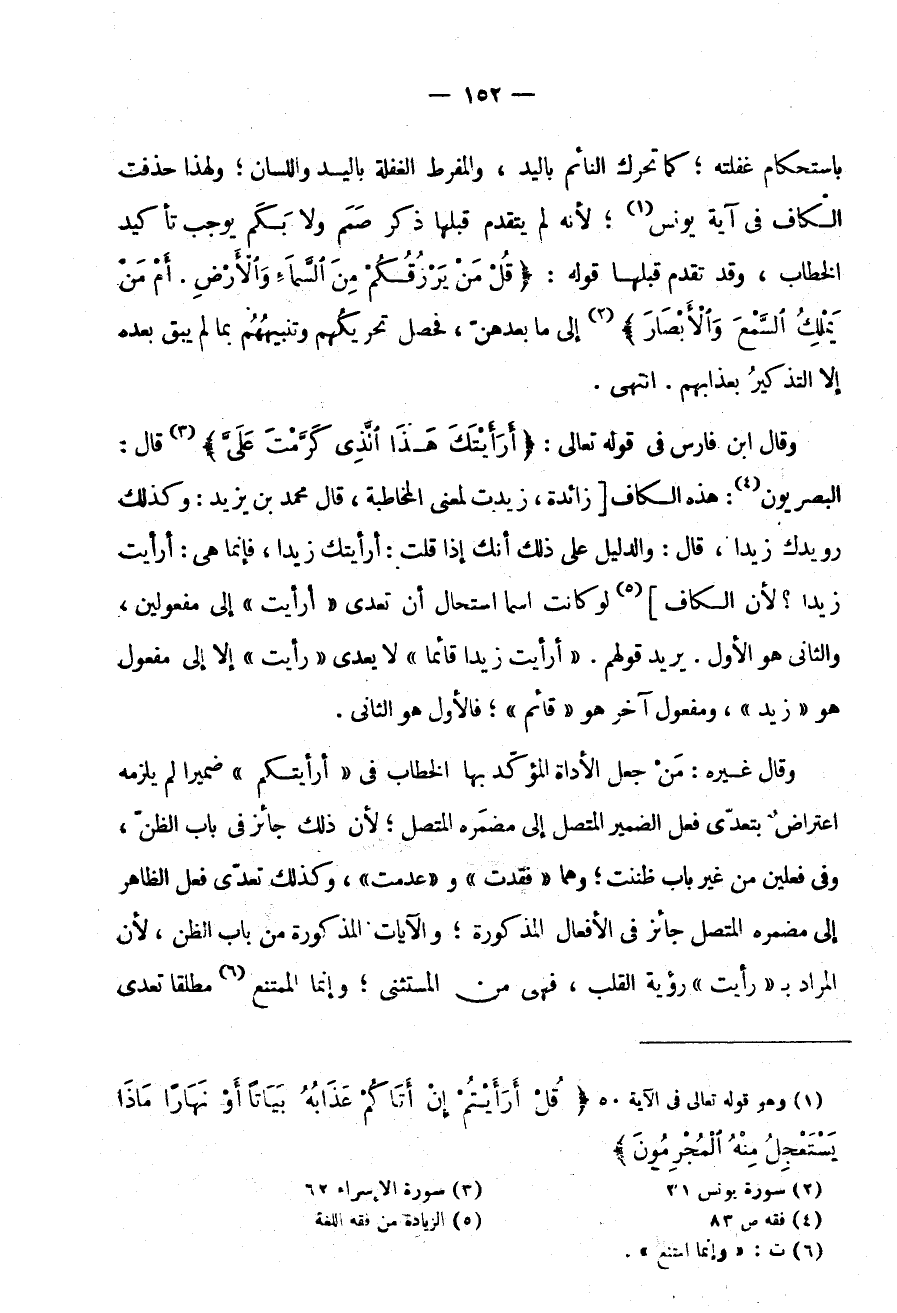 — ١٥٢ —
باستحكام غفلته ؛ كما تحرك النائم باليد ، والمفرط الغفلة باليـد واللسان ؛ ولهذا حذفت
الكاف فى آية يونس(١) ؛ لأنه لم يتقدم قبلها ذكر صَمَم ولا بَكَم يوجب تأكيد
الخطاب ، وقد تقدم قبلها قوله : ﴿ قُلْ مَنْ يَرْزُقُكُمْ مِنَ ٱلسَّمَاءِ وَٱلْأَرْضِ . أَمْ مَنْ
يَمْلِكُ ٱلسَّمْعَ وَٱلْأَبْصَارَ ﴾(٢) إلى ما بعدهنّ ، فحصل تحريكُهم وتنبيههُم بما لم يبق بعده
إلا التذكيرُ بعذابهم . انتهى .
وقال ابن فارس فى قوله تعالى : ﴿ أَرَأَيْتَكَ هَـذَا ٱلَّذِى كَرَّمْتَ عَلَىَّ ﴾(٣) قال :
البصريون(٤) : هذه الكاف [ زائدة ، زيدت لمعنى المخاطبة ، قال محمد بن يزيد : وكذلك
رويدك زيدا ، قال : والدليل على ذلك أنك إذا قلت : أرأيتك زيدا ، فإنما هى : أرأيت
زيدا ؟ لأن الكاف ](٥) لو كانت اسما استحال أن تعدى « أرأيت » إلى مفعولين ،
والثانى هو الأول . يريد قولهم . « أرأيت زيدا قائما » لا يعدى « رأيت » إلا إلى مفعول
هو « زيد » ، ومفعول آخر هو « قائم » ؛ فالأول هو الثانى .
وقال غـيره : مَنْ جعل الأداة المؤكّد بها الخطاب فى « أرأيتكم » ضميرا لم يلزمه
اعتراضٌ بتعدّى فعل الضمير المتصل إلى مضمَره المتصل ؛ لأن ذلك جائز فى باب الظنّ ،
وفى فعلين من غير باب ظننت ؛ وهما « فقدت » و «عدمت» ، وكذلك تعدّى فعل الظاهر
إلى مضمره المتصل جائز فى الأفعال المذكورة ؛ والآيات المذكورة من باب الظن ، لأن
المراد بـ « رأيت » رؤية القلب ، فهى من المستثنى ؛ وإنما الممتنع(٦) مطلقا تعدى
(١) وهو قوله تعالى فى الآية ٥٠ ﴿ قُلْ أَرَأَيْتُمْ إِنْ أَتَاكُمْ عَذَابُهُ بَيَاتاً أَوْ نَهَارًا مَاذَا
يَسْتَعْجِلُ مِنْهُ ٱلْمُجْرِمُونَ ﴾
(٢) سورة يونس ٣١ (٣) سورة الإسراء ٦٢
(٤) فقه ص ٨٣ (٥) الزيادة من فقه اللغة
(٦) ت : « وإنما امتنع » .